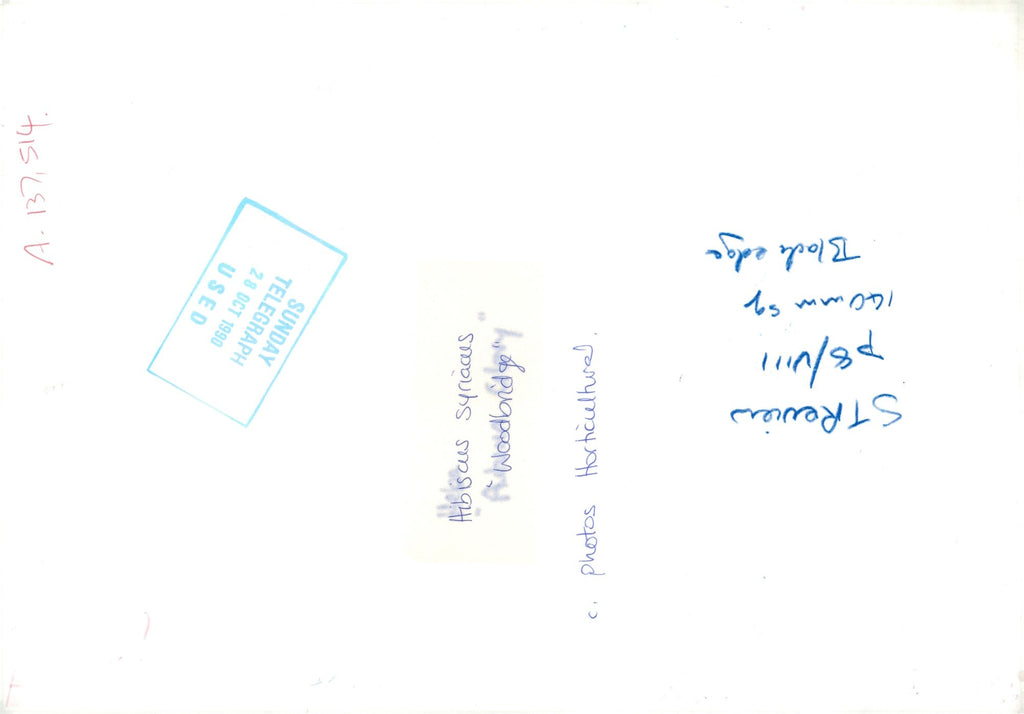 A. 137,514.
SUNDAY
TELEGRAPH
28 OCT 1990
USED
Hibiscus Syriacus
"Woodbridge"
c. photos Horticultural.
ST Review
p8/VIII
140mm sq
Black edge